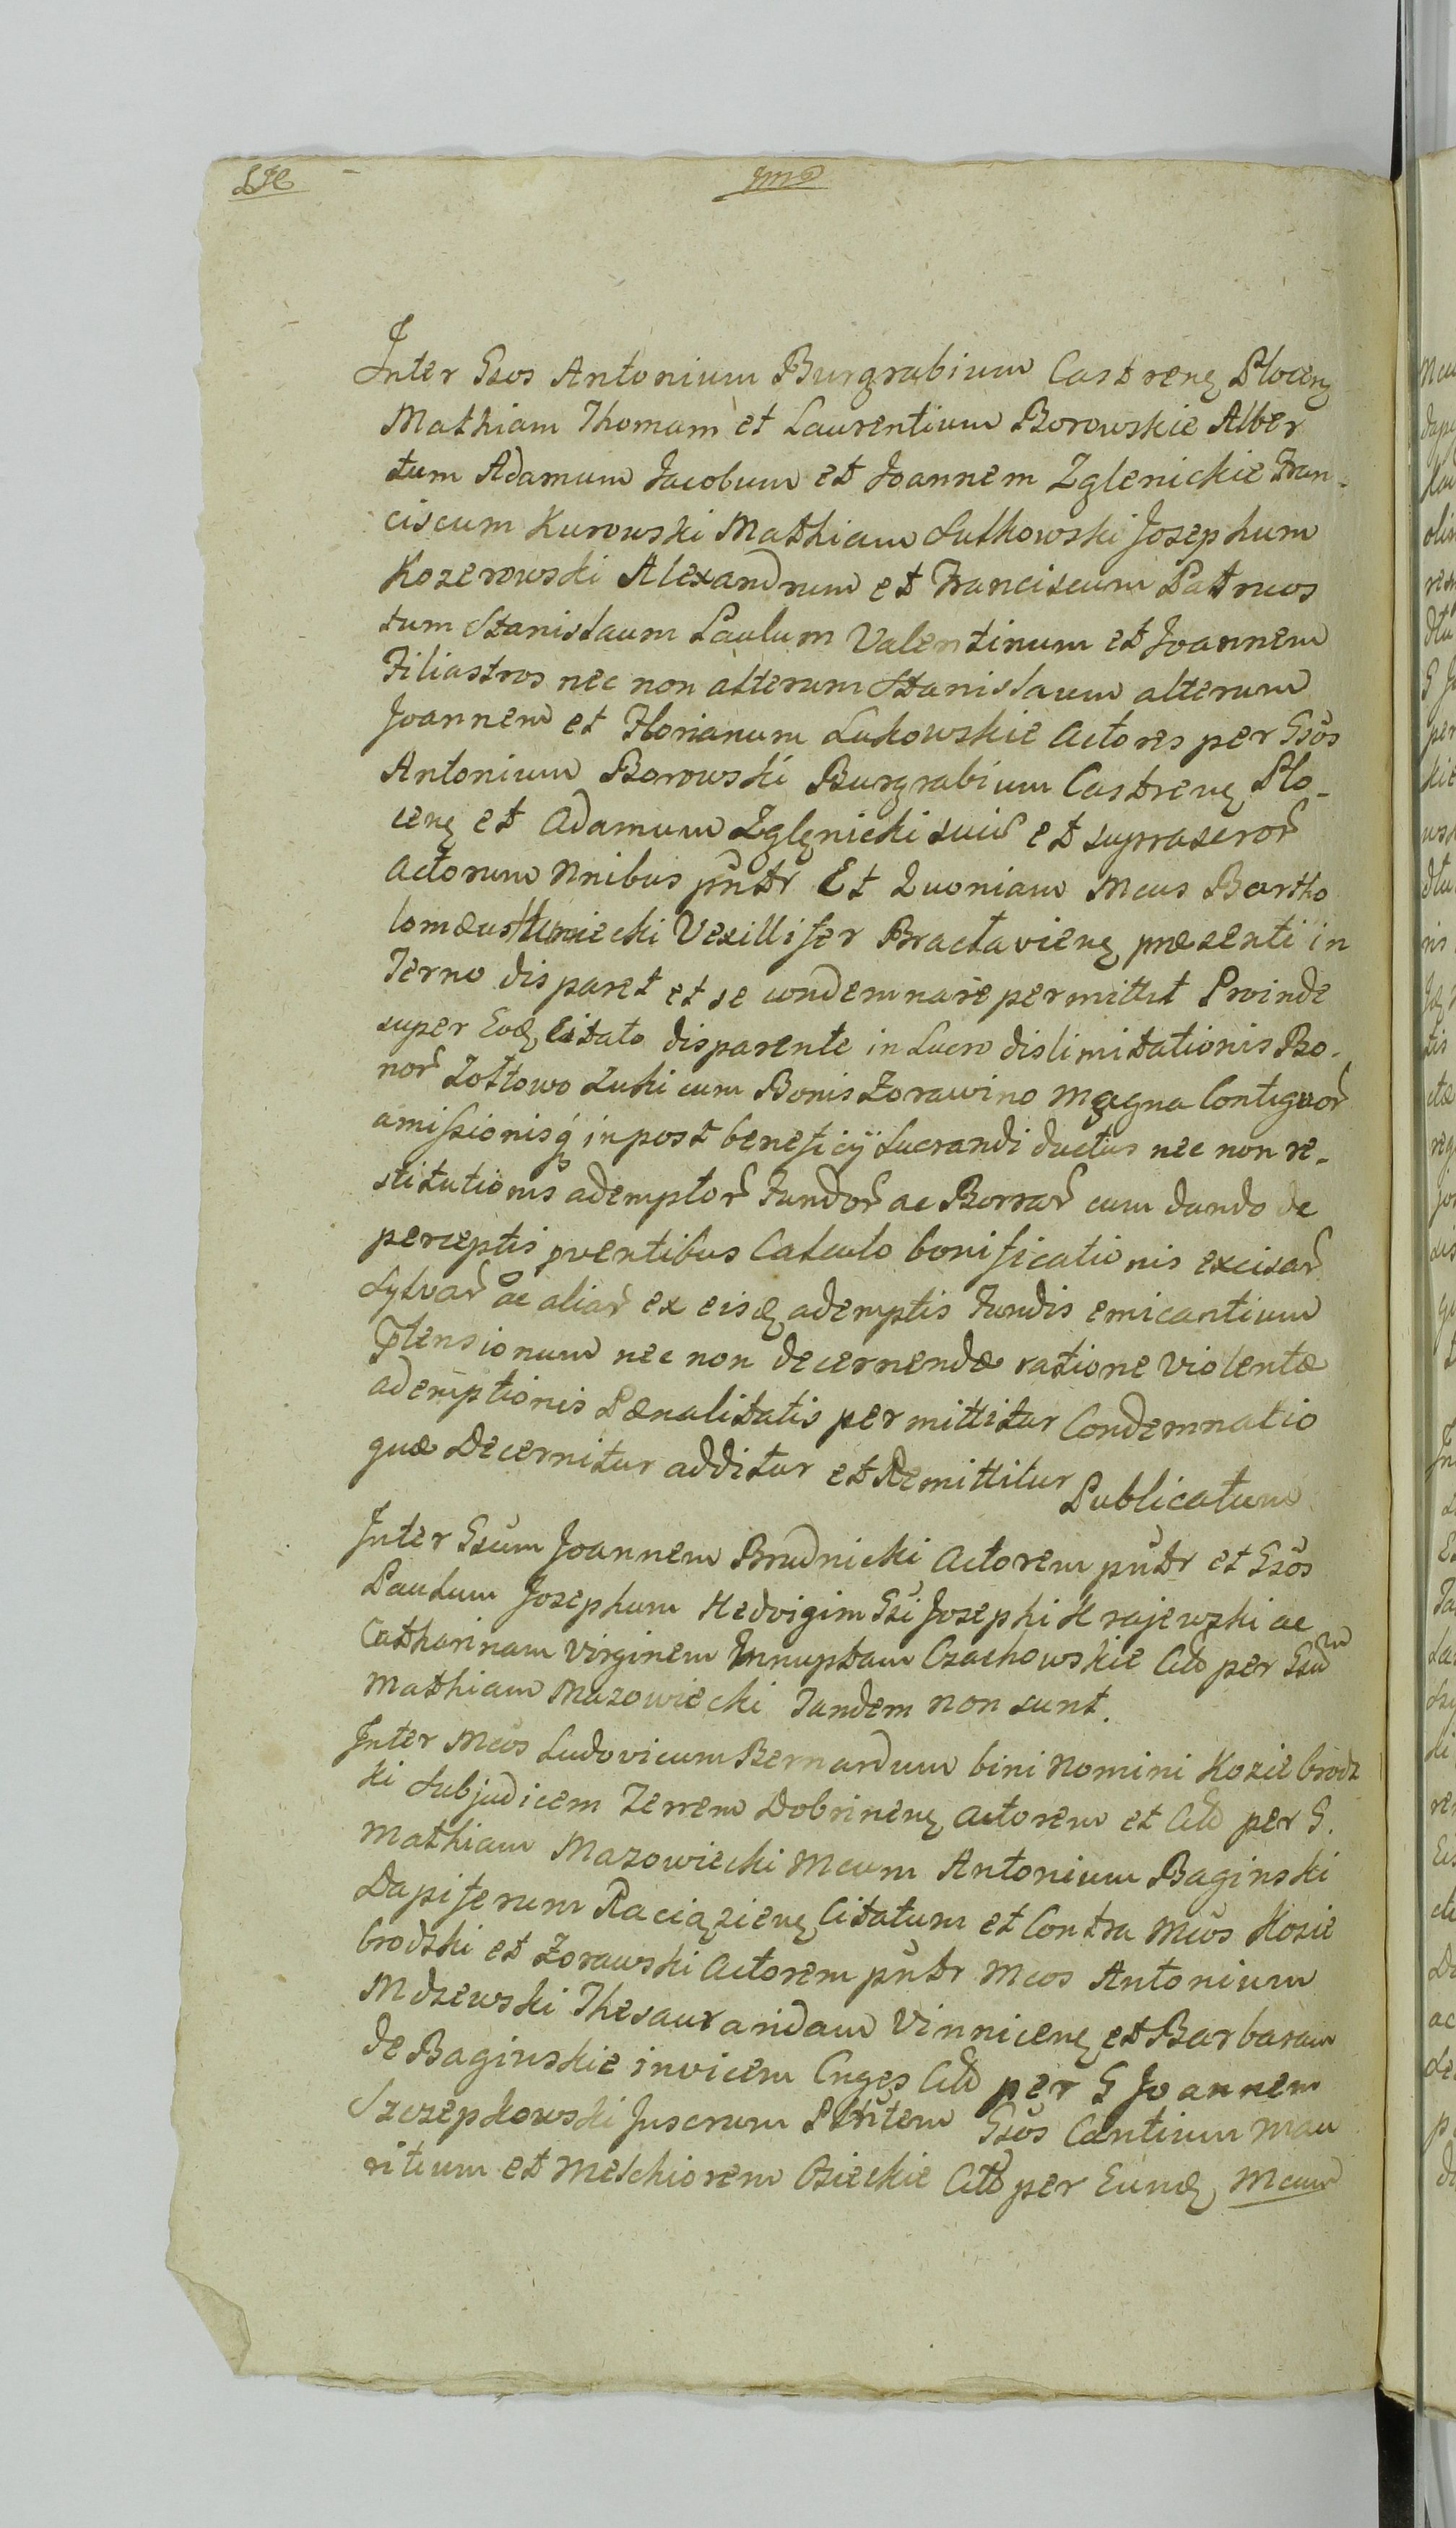 Inter Gsos Antonium Burgrabium Castrenꝫ Plocenꝫ
Mathiam Thomam et Laurentium Borowskie Alber
tum Adamum Jacobum et Joannem Zglenickie Fran-
ciscum Kurowski Mathiam Sutkowski Josephum
Kozerowski Alexandrum et Franciscum Patruos
tum Stanislaum Paulum Valentinum et Joannem
Filiastros nec non alterum Stanislaum alterum
Joannem et Florianum Lukowskie Actores per Gsos
Antonium Borowski Burgrabium Castrenꝫ Plo-
cenꝫ et Adamum Zglenicki suis et suprascror̃
Actorum Nnibus pñtr Et Quoniam Mcus Bartho
lomæus Vexillifer Bractavienꝫ præsenti in
Terno disparet et se condemnare permittit Proinde
super Eodꝫ Citato disparente in Lucro dislimitationis Bo-
nor̃ Zottowo Luki cum Bonis Zorawino Magna Contiguor̃
amissionisqꝫ inpost beneficÿ Lucrandi ductus nec non re-
stitutionis ademptor̃ Fundor̃ ac Borrar̃ cum dando de
perceptis pventibus Calculo bonificationis excisar̃
Sylvar̃ ac aliar̃ ex eisdꝫ ademptis Fundis emicantium
Ptensionum nec non decernendæ ratione violentæ
ademptionis Pænalitatis permittitur Condemnatio
quæ Decernitur additur et Remittitur Publicatum
Inter Gsum Joannem Brudnicki Actorem pñtr et Gsos
Paulum Josephum Hedvigim Gsi Josephi Krajewski ac
Catharinam Virginem Innuptam Czachowskie Citd per Gsum
Mathiam Mazowiecki Tandem non sunt.
Inter Mcos Ludovicum Bernardum bini Nomini Koziebrodz
ki Subjudicem Terrem Dobrinenꝫ Actorem et Citd per G.
Mathiam Mazowiecki Mcum Antonium Baginski
Dapiferum Raciązienꝫ Citatum et Contra Mcos Kozie
brodzki et Zorawski Actorem pñtr Mcos Antonium
Mdzewski Thesauraridam Vinnicenꝫ et Barbaram
de Baginskie invicem Cnges Citd per G Joannem
Szczepkowski Juscrum Gsos Cantium Mau
ritium et Melchiorem Osieckie Citd per Eundꝫ Mcum